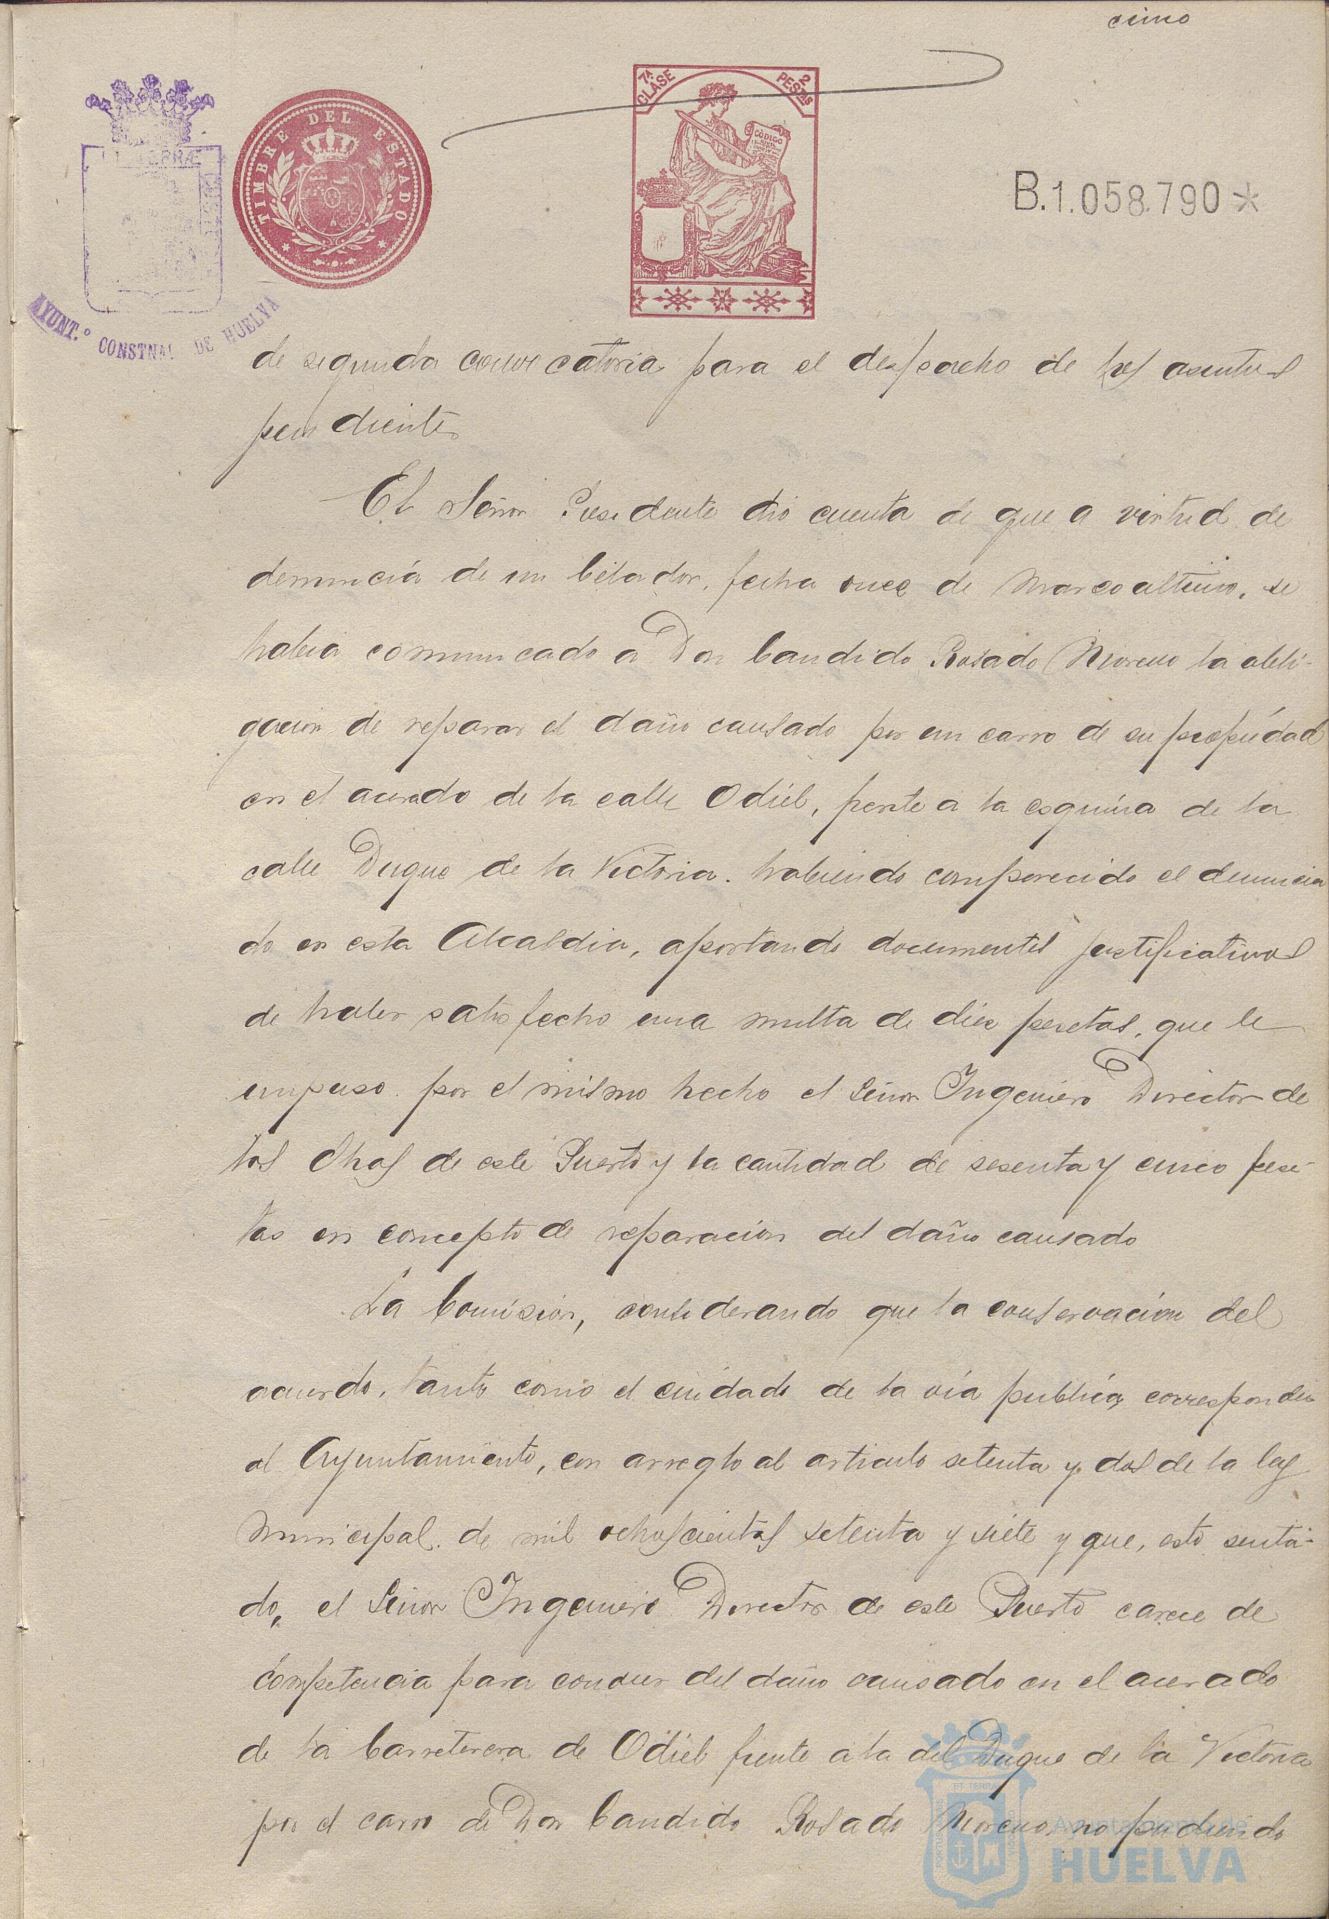 cinco
7ª CLASE
2 PESETAS
TIMBRE DEL ESTADO
CÓDIGO
ET TERRÆ
B.1.058.790*
AYUNT.º CONSTNAL DE HUELVA
de segunda convocatoria para el despacho de los asuntos
pendientes
El Señor Presidente dió cuenta de que a virtud de
denuncia de un Celador, fecha once de Marzo ultimo, se
habia comunicado a Don Candido Rosado Moreno la obli-
gacion de reparar el daño causado por un carro de su propiedad
en el acerado de la calle Odiel, frente a la esquina de la
calle Duque de la Victoria. habiendo comparecido el denuncia
do en esta Alcaldia, aportando documentos justificativos
de haber satisfecho una multa de diez pesetas, que le
impuso por el mismo hecho el Señor Ingeniero Director de
las Obras de este Puerto y la cantidad de sesenta y cinco pese-
tas en concepto de reparacion del daño causado
La Comision, considerando que la conservacion del
acerado, tanto como el cuidado de la via publica corresponden
al Ayuntamiento, con arreglo al articulo setenta y dos de la ley
Municipal de mil ochocientos setenta y siete y que, esto senta-
do, el Señor Ingeniero Director de este Puerto carece de
competencia para conocer del daño causado en el acerado
de la Carretera de Odiel frente a la del Duque de la Victoria
por el carro de Don Candido Rosado Moreno, no pudiendo
ET TERRÆ
Ayuntamiento de
HUELVA